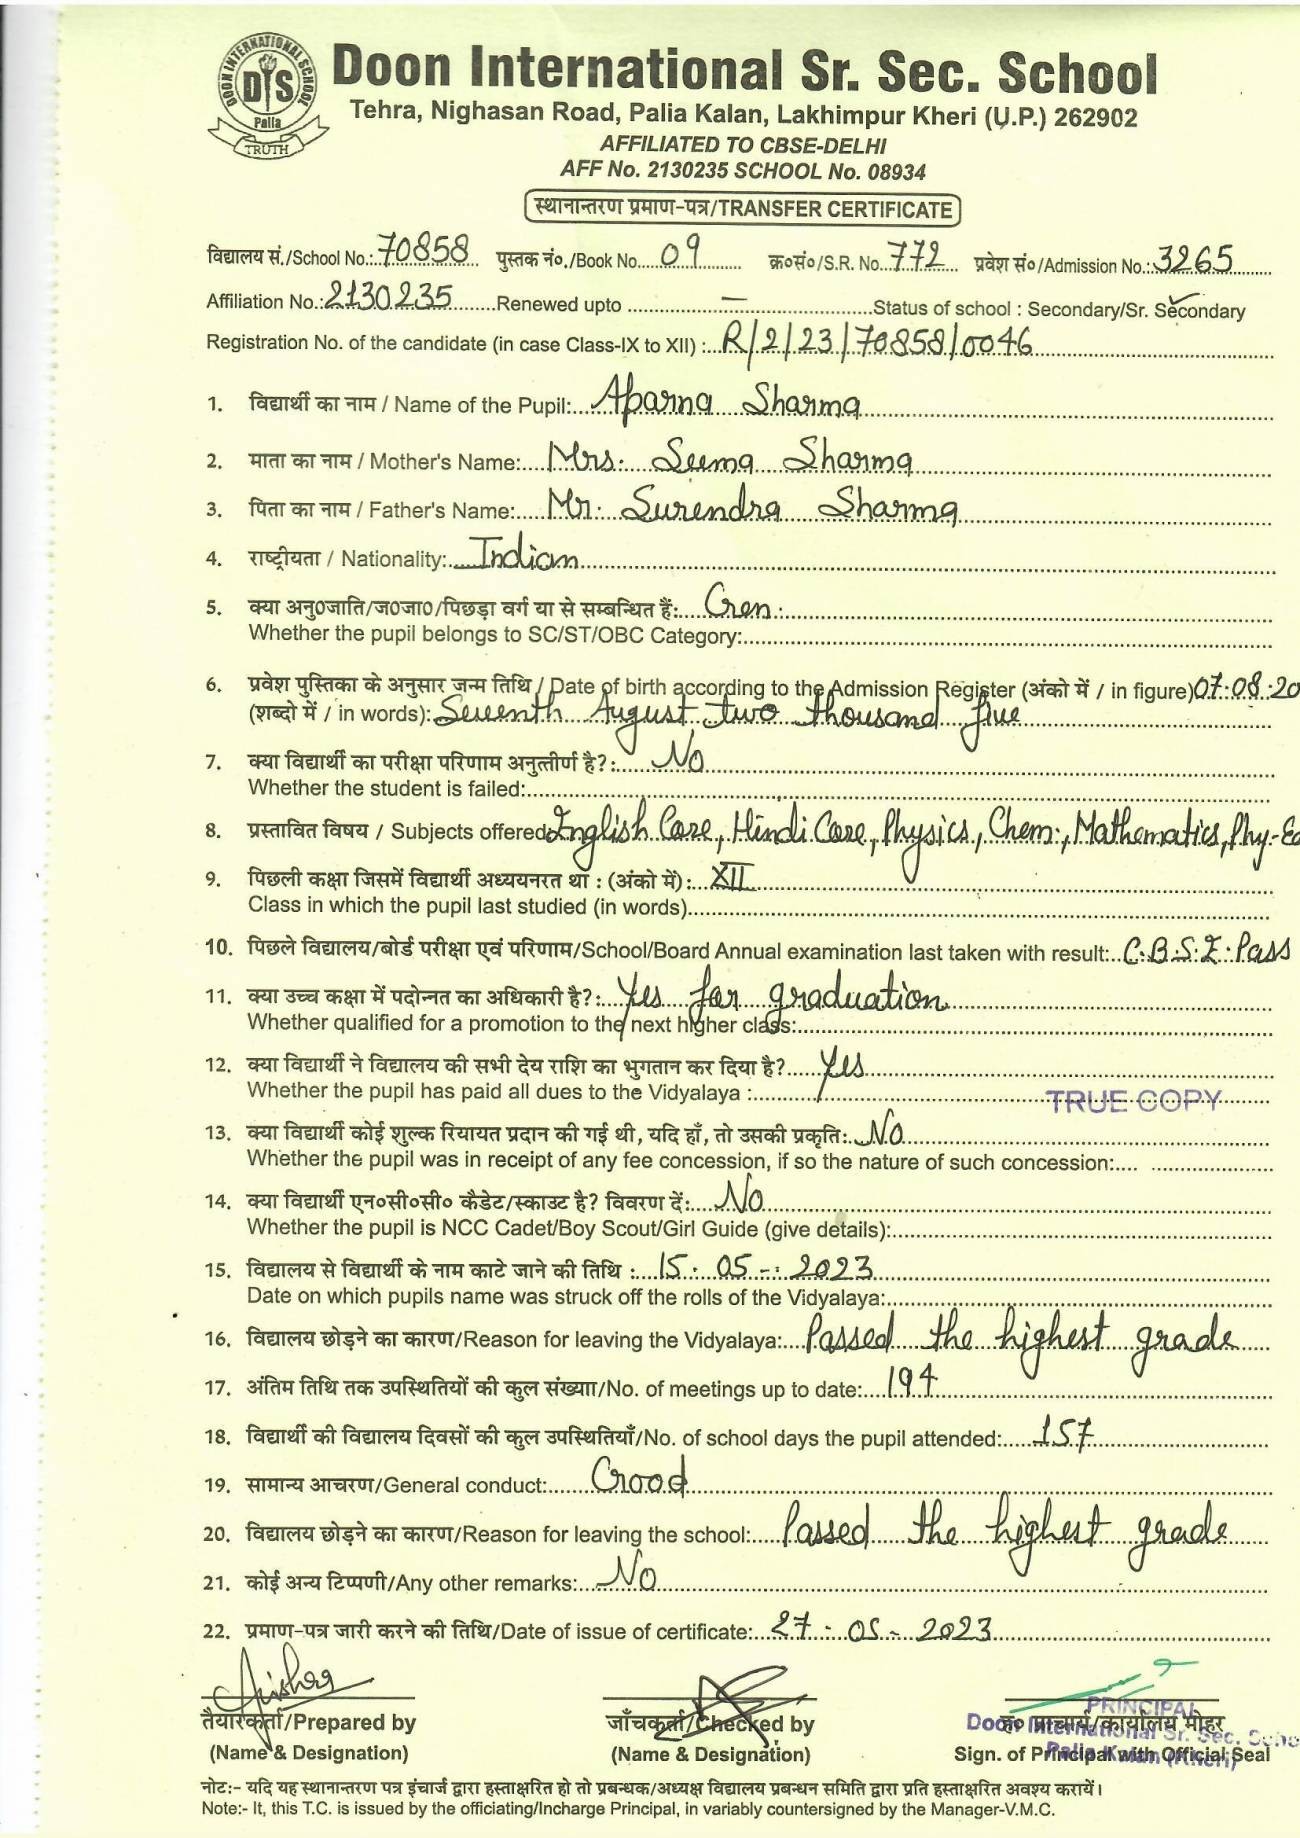 DOON INTERNATIONAL SCHOOL
DIS
Palia
TRUTH
Doon International Sr. Sec. School
Tehra, Nighasan Road, Palia Kalan, Lakhimpur Kheri (U.P.) 262902
AFFILIATED TO CBSE-DELHI
AFF No. 2130235 SCHOOL No. 08934
स्थानान्तरण प्रमाण-पत्र/TRANSFER CERTIFICATE
विद्यालय सं./School No.: 70858 पुस्तक नं०./Book No. 09 क्र०सं०/S.R. No. 772 प्रवेश सं०/Admission No.: 3265
Affiliation No.: 2130235 Renewed upto — Status of school : Secondary/Sr. Secondary
Registration No. of the candidate (in case Class-IX to XII) : R/2/23/70858/0046
1. विद्यार्थी का नाम / Name of the Pupil: Aparna Sharma
2. माता का नाम / Mother's Name: Mrs. Seema Sharma
3. पिता का नाम / Father's Name: Mr. Surendra Sharma
4. राष्ट्रीयता / Nationality: Indian
5. क्या अनु0जाति/ज0जा0/पिछड़ा वर्ग या से सम्बन्धित हैं: Gen.
Whether the pupil belongs to SC/ST/OBC Category:
6. प्रवेश पुस्तिका के अनुसार जन्म तिथि / Date of birth according to the Admission Register (अंको में / in figure) 07.08.20
(शब्दो में / in words): Seventh August two thousand five
7. क्या विद्यार्थी का परीक्षा परिणाम अनुत्तीर्ण है?: No
Whether the student is failed:
8. प्रस्तावित विषय / Subjects offered: English Core, Hindi Core, Physics, Chem., Mathematics, Phy-Ed
9. पिछली कक्षा जिसमें विद्यार्थी अध्ययनरत था : (अंको में): XII
Class in which the pupil last studied (in words)
10. पिछले विद्यालय/बोर्ड परीक्षा एवं परिणाम/School/Board Annual examination last taken with result: C.B.S.E. Pass
11. क्या उच्च कक्षा में पदोन्नत का अधिकारी है?: Yes for graduation
Whether qualified for a promotion to the next higher class:
12. क्या विद्यार्थी ने विद्यालय की सभी देय राशि का भुगतान कर दिया है? Yes
Whether the pupil has paid all dues to the Vidyalaya :
TRUE COPY
13. क्या विद्यार्थी कोई शुल्क रियायत प्रदान की गई थी, यदि हाँ, तो उसकी प्रकृति: No
Whether the pupil was in receipt of any fee concession, if so the nature of such concession:
14. क्या विद्यार्थी एन०सी०सी० कैडेट/स्काउट है? विवरण दें: No
Whether the pupil is NCC Cadet/Boy Scout/Girl Guide (give details):
15. विद्यालय से विद्यार्थी के नाम काटे जाने की तिथि : 15. 05-. 2023
Date on which pupils name was struck off the rolls of the Vidyalaya:
16. विद्यालय छोड़ने का कारण/Reason for leaving the Vidyalaya: Passed the highest grade
17. अंतिम तिथि तक उपस्थितियों की कुल संख्या/No. of meetings up to date: 194
18. विद्यार्थी की विद्यालय दिवसों की कुल उपस्थितियाँ/No. of school days the pupil attended: 157
19. सामान्य आचरण/General conduct: Good
20. विद्यालय छोड़ने का कारण/Reason for leaving the school: Passed the highest grade
21. कोई अन्य टिप्पणी/Any other remarks: No
22. प्रमाण-पत्र जारी करने की तिथि/Date of issue of certificate: 27. 05-. 2023
तैयारकर्ता/Prepared by जाँचकर्ता/Checked by ह० प्राचार्य/कार्यालय मोहर
(Name & Designation) (Name & Designation) Sign. of Principal with Official Seal
PRINCIPAL
Doon International Sr. Sec. Scho
Palia Kalan (Kheri)
नोटः- यदि यह स्थानान्तरण पत्र इंचार्ज द्वारा हस्ताक्षरित हो तो प्रबन्धक/अध्यक्ष विद्यालय प्रबन्धन समिति द्वारा प्रति हस्ताक्षरित अवश्य करायें।
Note:- It, this T.C. is issued by the officiating/Incharge Principal, in variably countersigned by the Manager-V.M.C.